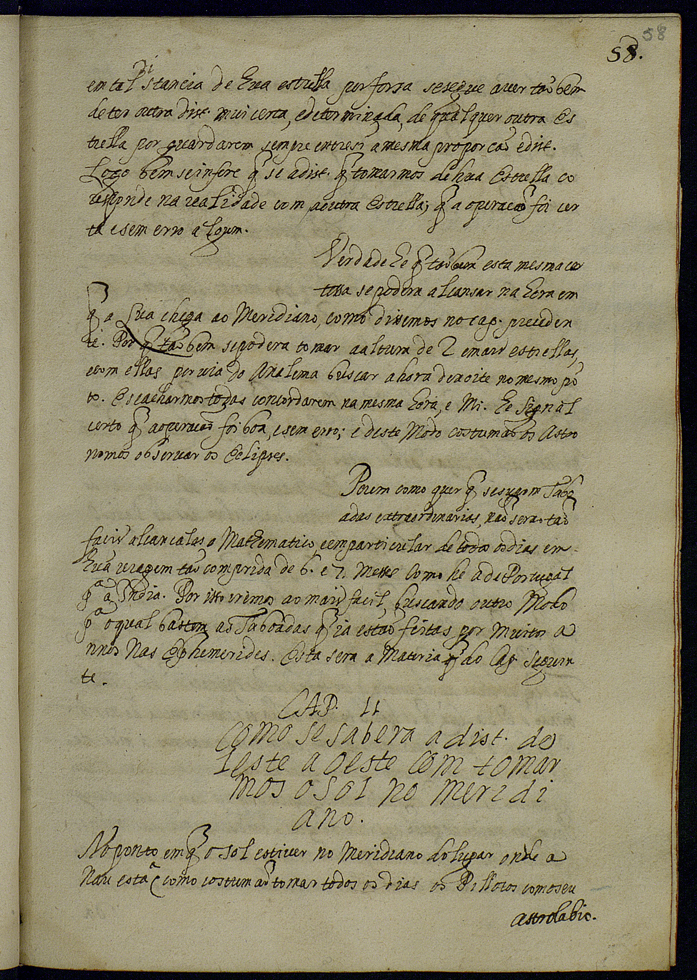 58
58.
em tal distancia de hua estrella por forsa se segue aver tãobem
de ter outra dist. mui certa, e determinada, de qualquer outra Es
trella por guardarem sempre entre si a mesma proporcaõ e dist.
Logo bem se infere q̃ se a dist. q̃ tomarmos de hua Estrella co
responde na realidade com a outra Estrella; q̃ a operacaõ foi cer
ta e sem erro algum.
Verdade he q̃ tãobem esta mesma cer
teza se podera alcansar na hora em
q̃ a Lua chega ao Meridiano, como diremos no cap. preceden
te. Por q̃ tãobem se podera tomar a altura de 2 e mais estrellas,
e com ellas por via do Analema buscar a hora de noite no mesmo põ
to. E se acharmos todas concordarem na mesma hora, e Mi. he signal
certo q̃ a operacaõ foi boa, e sem erro; e deste Modo costumaõ os Astro
nomos observar os Eclipses.
Porem como quer q̃ se sigam Tabo
adas extraordinarias, naõ sera taõ
facil alcancalas o Mathematico, e em particular de todos os dias em
hua viagem taõ comprida de 6. e 7. Meses como he a de Portugal
p.ª a India. Por isso iremos ao mais facil, buscando outro Modo
p.ª o qual bastem as Taboadas q̃ ja estaõ feitas por Muitos A
nnos Nas Ephemerides. Esta sera a Materia q̃ do Cap. Seguin
te.
CAP. 11
Como se sabera a dist. de
Leste a Oeste com tomar
mos o Sol no Meridi
ano.
No ponto em q̃ o Sol estiver no Meridiano do lugar onde a
Nau está (como costumaõ tomar todos os dias os Pillotos com o seu
Astrolabio.